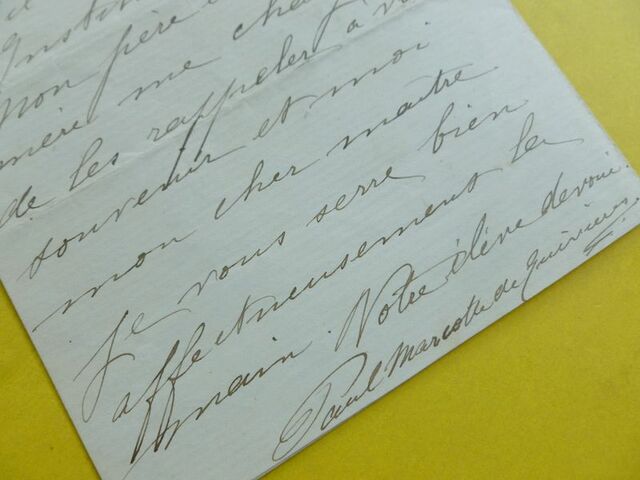 Mon père
mère me
de les rappeler à
souvenir et moi
mon cher maître
je vous serre bien
affectueusement la
main. Votre élève dévoué.
Paul Marcotte de Quivières